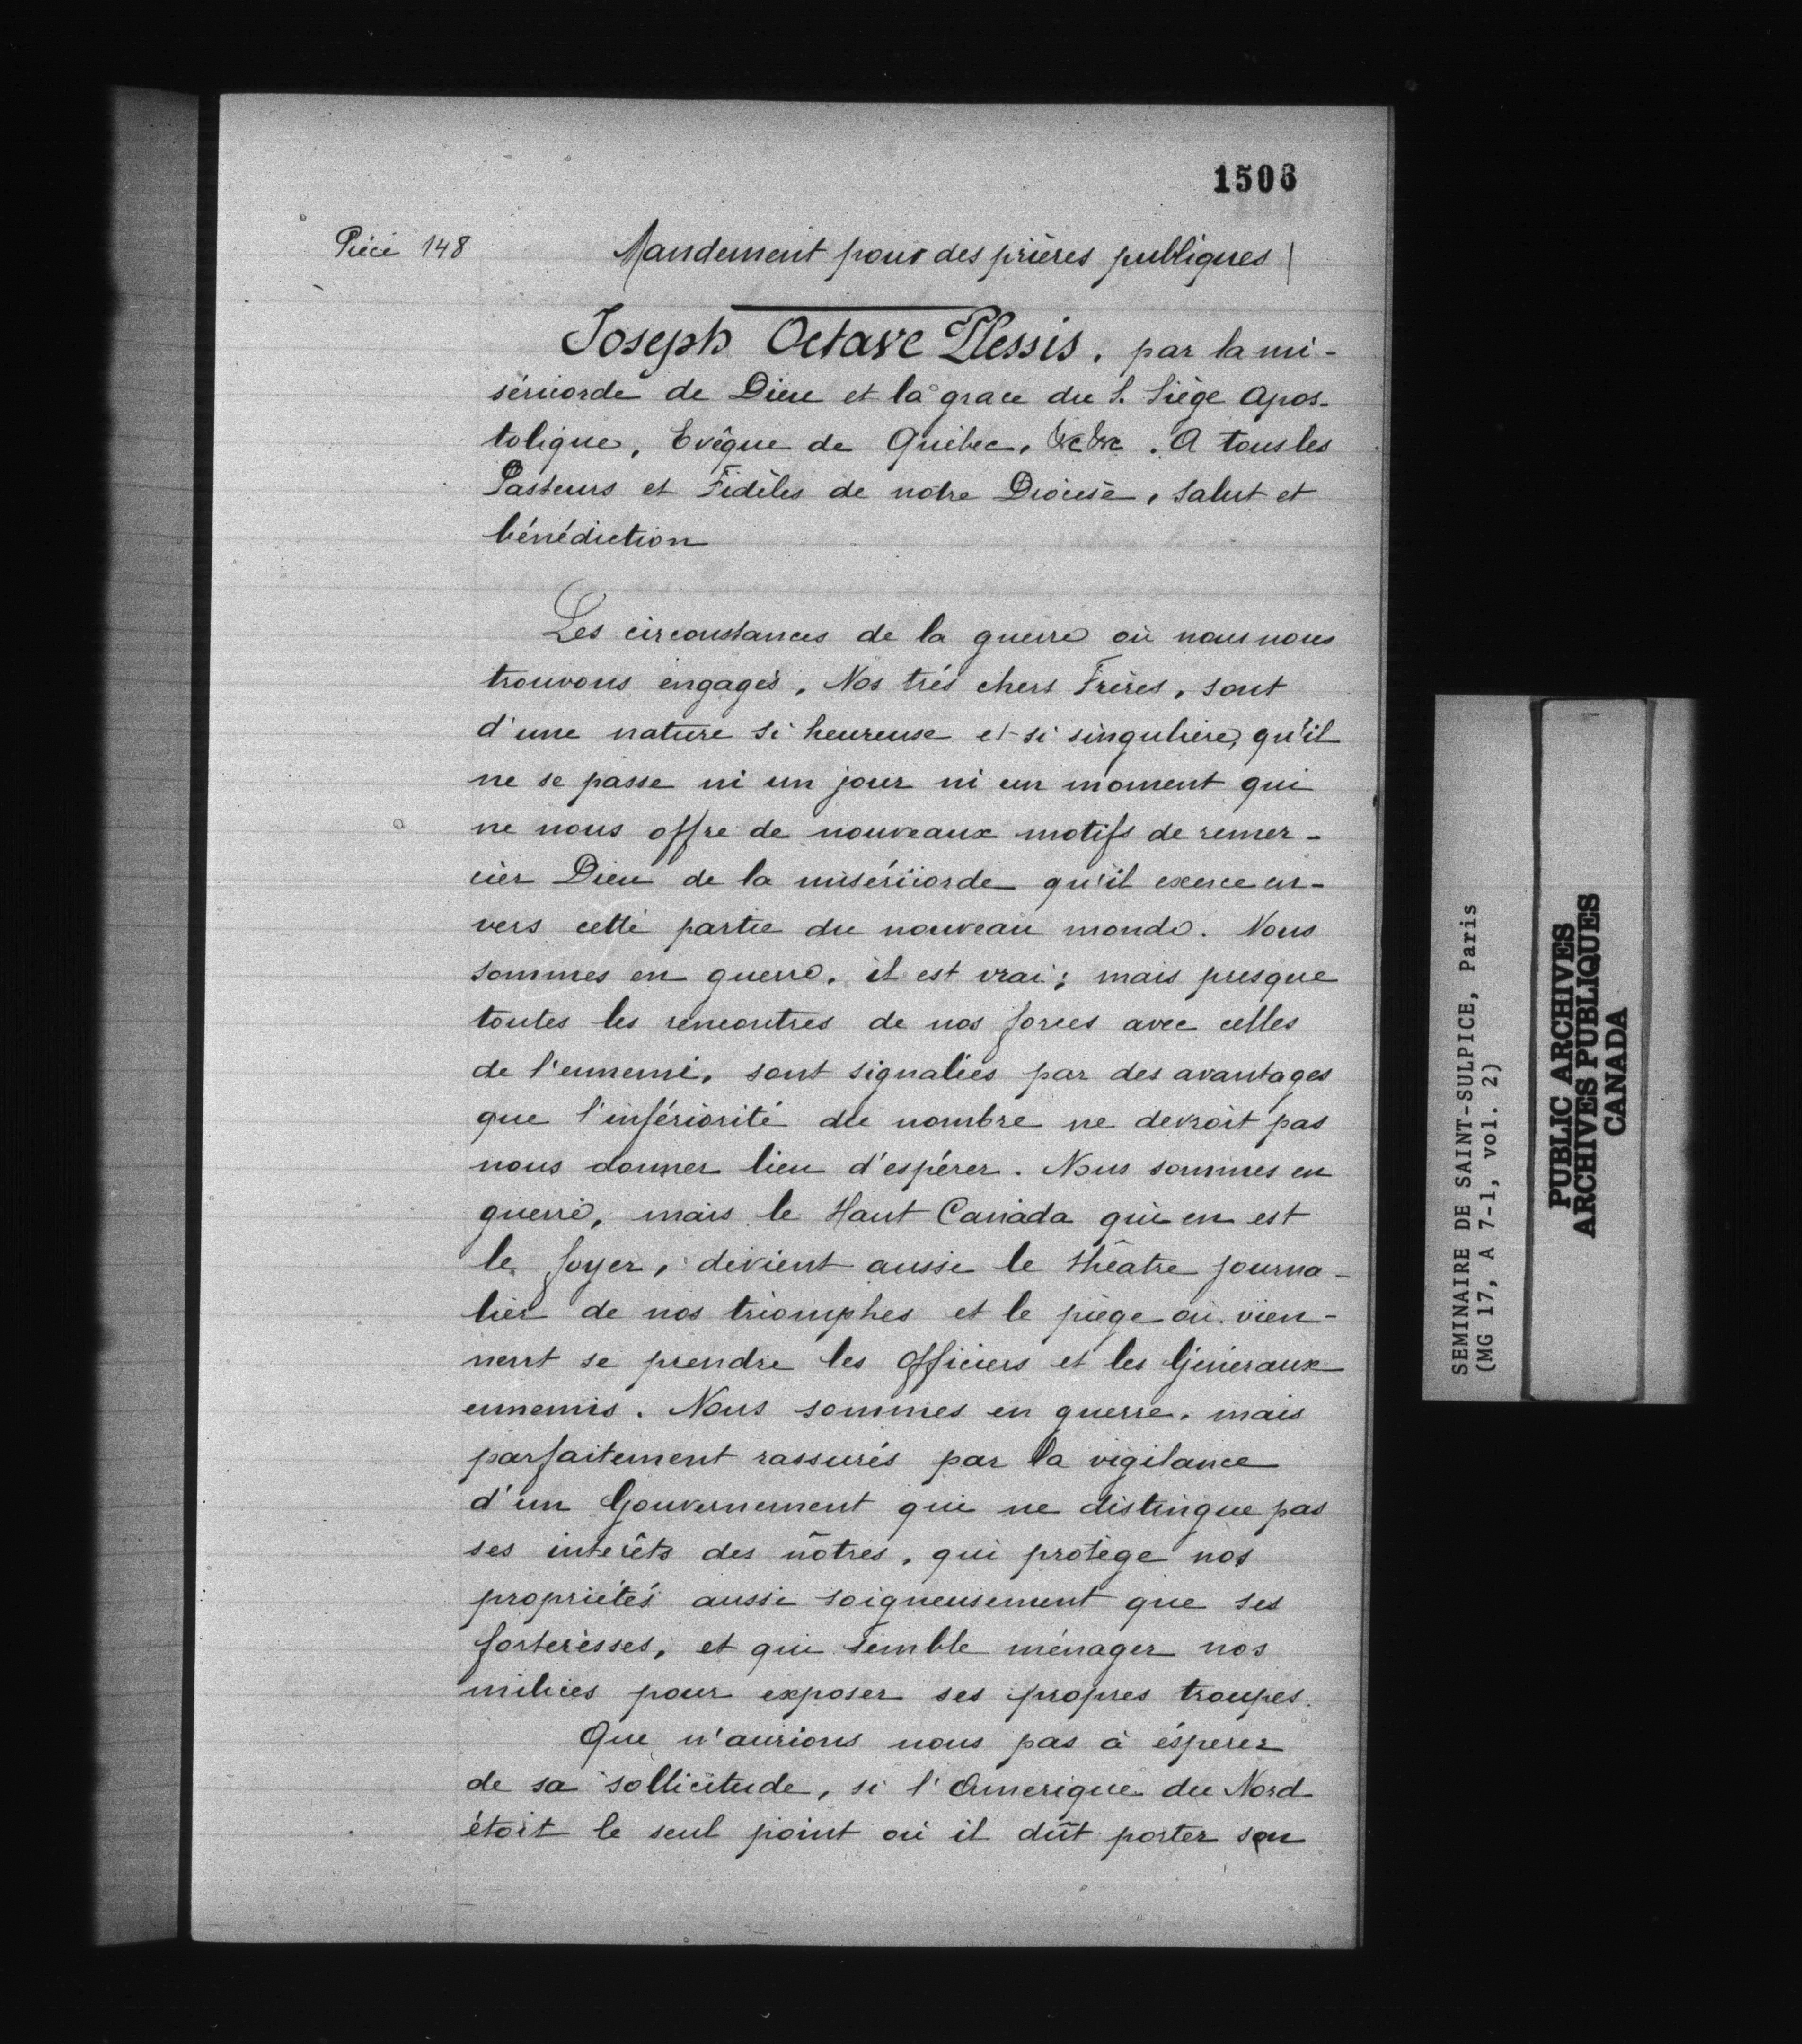 1506
Pièce 148
Mandement pour des prières publiques
Joseph Octave Plessis, par la mi-
séricorde de Dieu et la grace du S. Siège Apos-
tolique, Evêque de Québec, &c &c. A tous les
Pasteurs et Fidèles de notre Diocèse, Salut et
bénédiction
Les circonstances de la guerre où nous nous
trouvons engagés, Nos trés chers Frères, sont
d'une nature si heureuse et si singulière, qu'il
ne se passe ni un jour ni un moment qui
ne nous offre de nouveaux motifs de remer-
cier Dieu de la miséricorde qu'il exerce en-
vers cette partie du nouveau monde. Nous
sommes en guerre, il est vrai; mais presque
toutes les rencontres de nos forces avec celles
de l'ennemi, sont signalées par des avantages
que l'infériorité du nombre ne devroit pas
nous donner lieu d'espérer. Nous sommes en
guerre, mais le Haut Canada qui en est
le foyer, devient aussi le théatre journa-
lier de nos triomphes et le piège où vien-
nent se prendre les Officiers et les Généraux
ennemis. Nous sommes en guerre, mais
parfaitement rassurés par la vigilance
d'un Gouvernement qui ne distingue pas
ses interêts des nôtres, qui protège nos
propriétés aussi soigneusement que ses
forteresses, et qui semble ménager nos
milices pour exposer ses propres troupes.
Que n'aurions nous pas à ésperer
de sa sollicitude, si l'Amerique du Nord
étoit le seul point où il dût porter son
SEMINAIRE DE SAINT-SULPICE, Paris
(MG 17, A 7-1, vol. 2)
PUBLIC ARCHIVES
ARCHIVES PUBLIQUES
CANADA